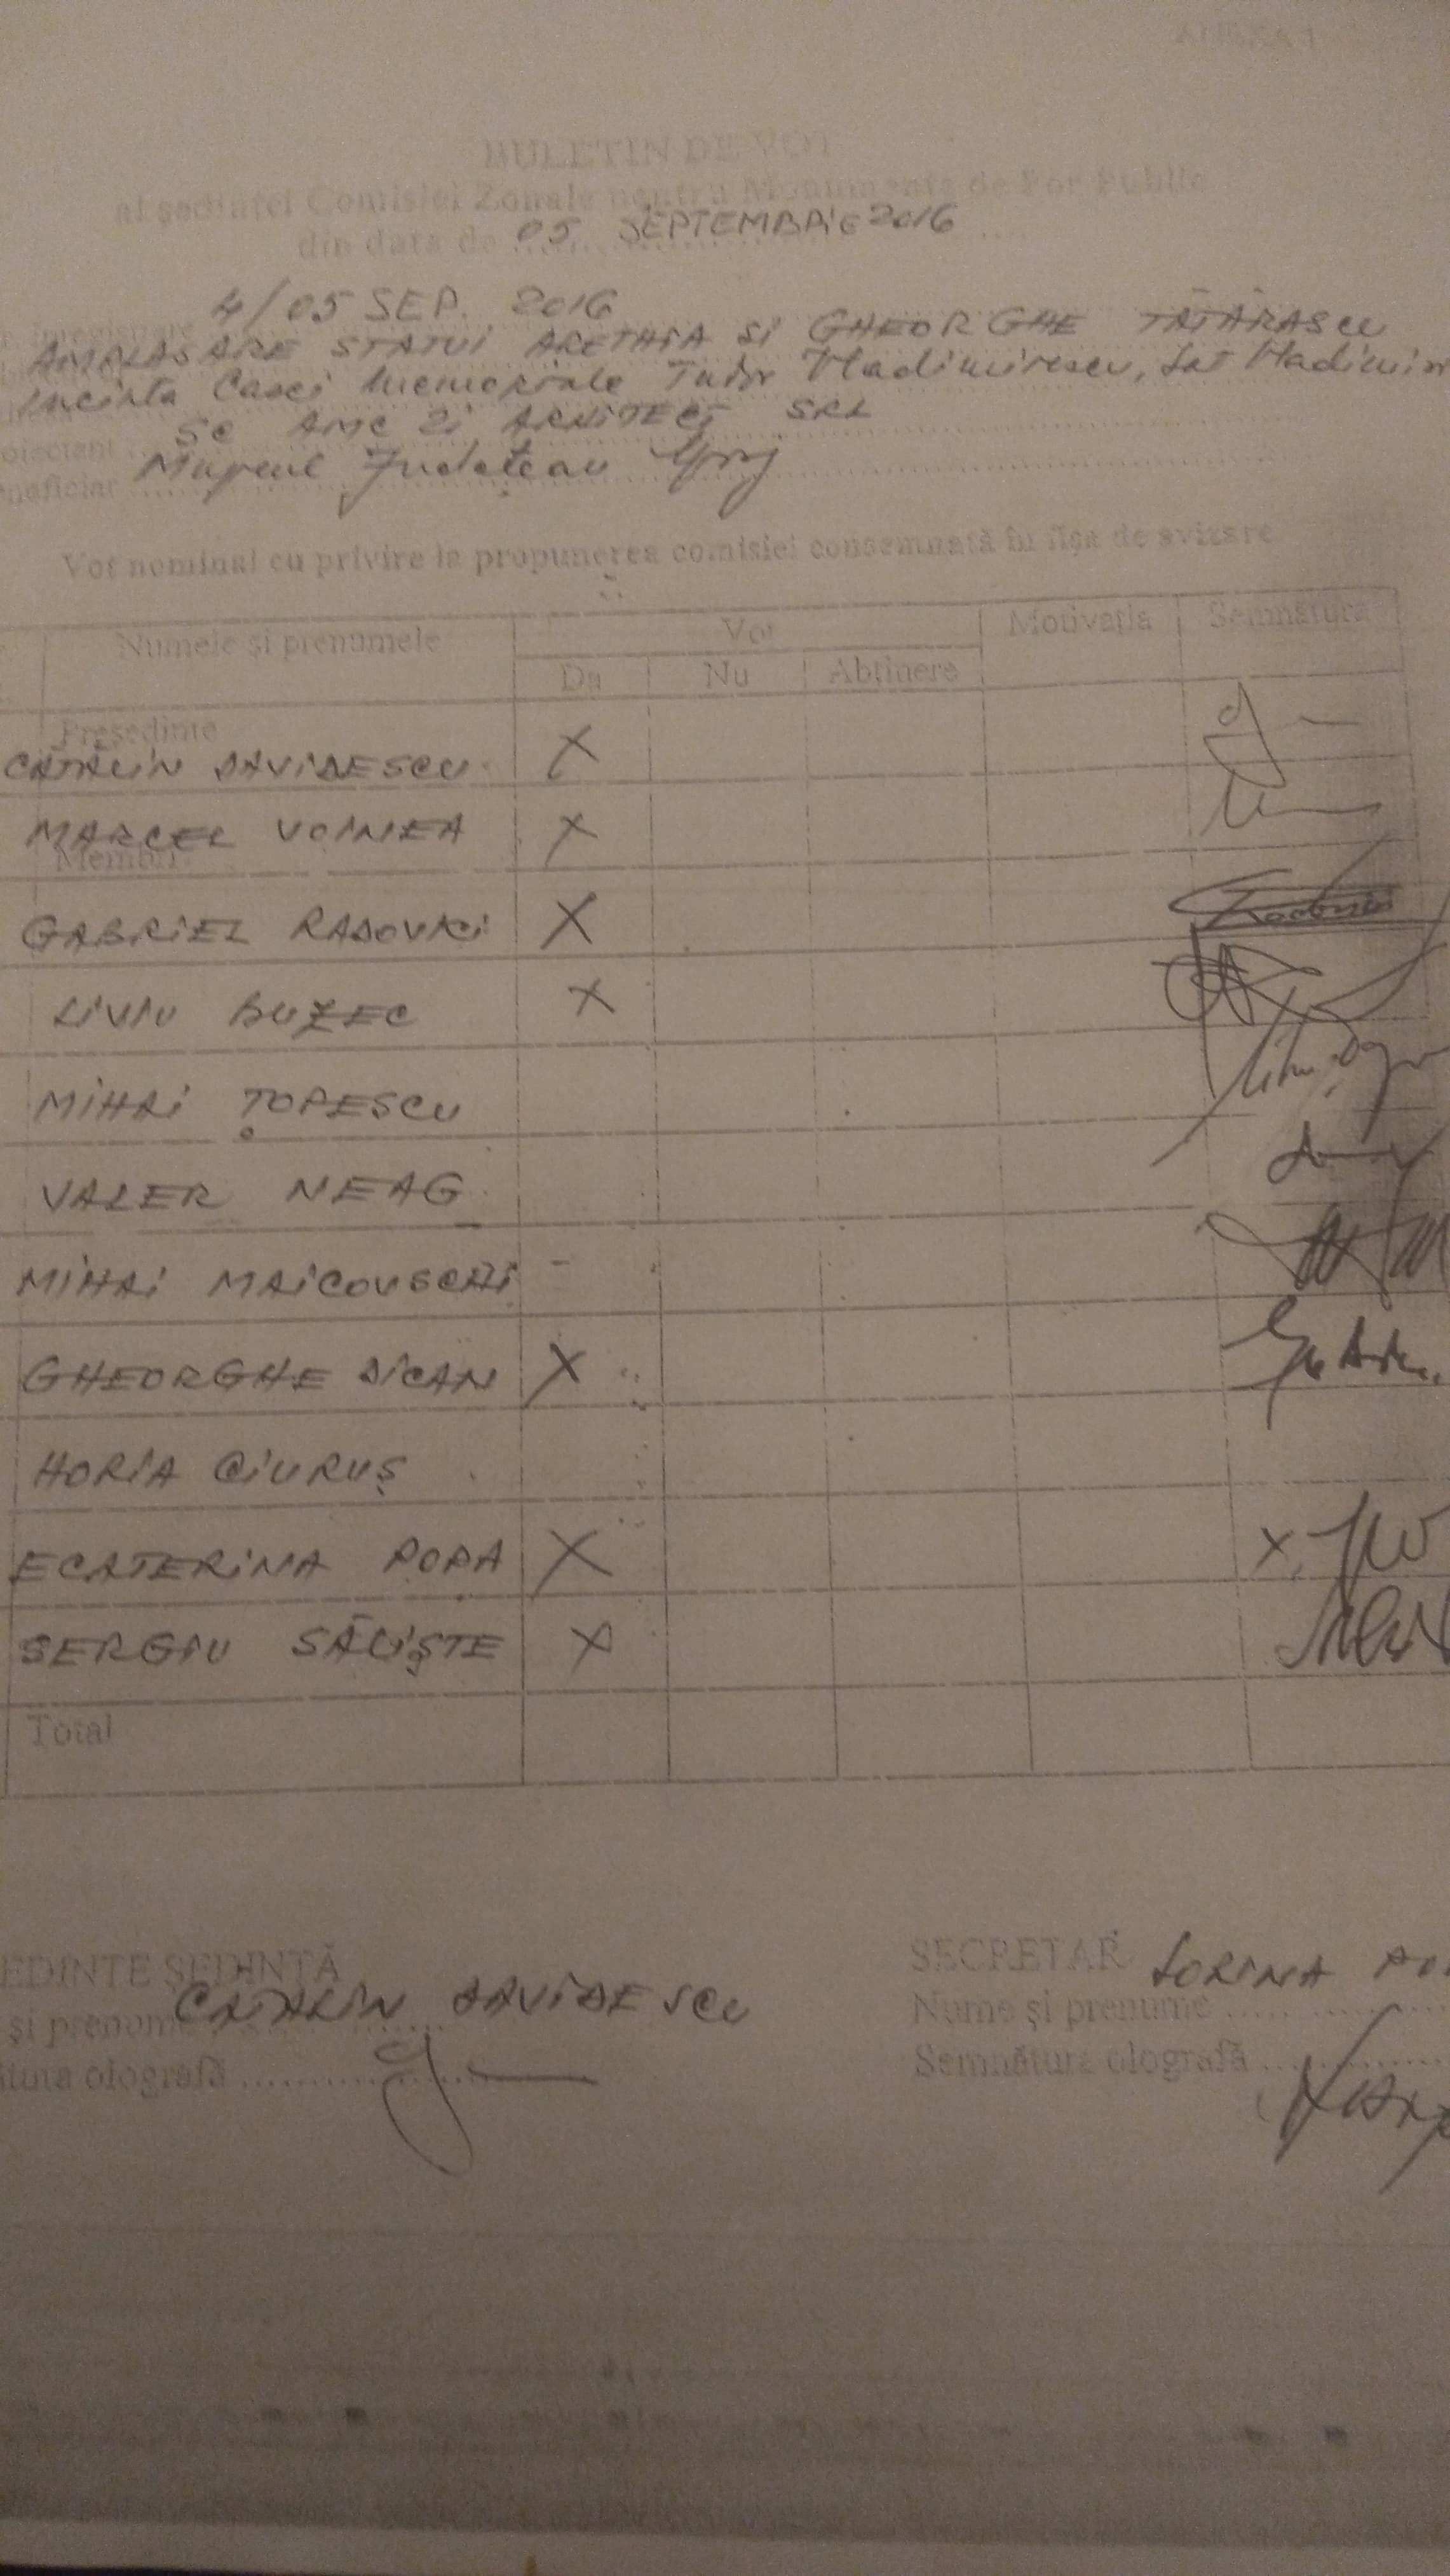 ANEXA 1
BULETIN DE VOT
al ședinței Comisiei Zonale pentru Monumente de For Public
din data de 05 SEPTEMBRIE 2016
înregistrare 4/05 SEP. 2016
AMPLASARE STATUI ARETHIA SI GHEORGHE TĂTĂRASCU
Incinta Casei Memoriale Tudor Vladimirescu, Sat Vladimir
oiectant SC AMC 21 ARHITECT SRL
neficiar Muzeul Judetean Gorj
Vot nominal cu privire la propunerea comisiei consemnată în fișa de avizare
Numele și prenumele Vot Motivația Semnătura
Da Nu Abținere
Președinte
CĂTĂLIN DAVIDESCU X
MARCEL VOINEA X
Membri:
GABRIEL RADOVICI X
LIVIU BUZEC X
MIHAI ȚOPESCU
VALER NEAG
MIHAI MAICOVSCHI -
GHEORGHE DICAN X
HORIA CIURUȘ
ECATERINA POPA X X
SERGIU SĂLIȘTE X
Total
EDINTE ȘEDINȚĂ
și prenume CATALIN DAVIDESCU
tura olografă
SECRETAR SORINA
Nume și prenume
Semnătura olografă